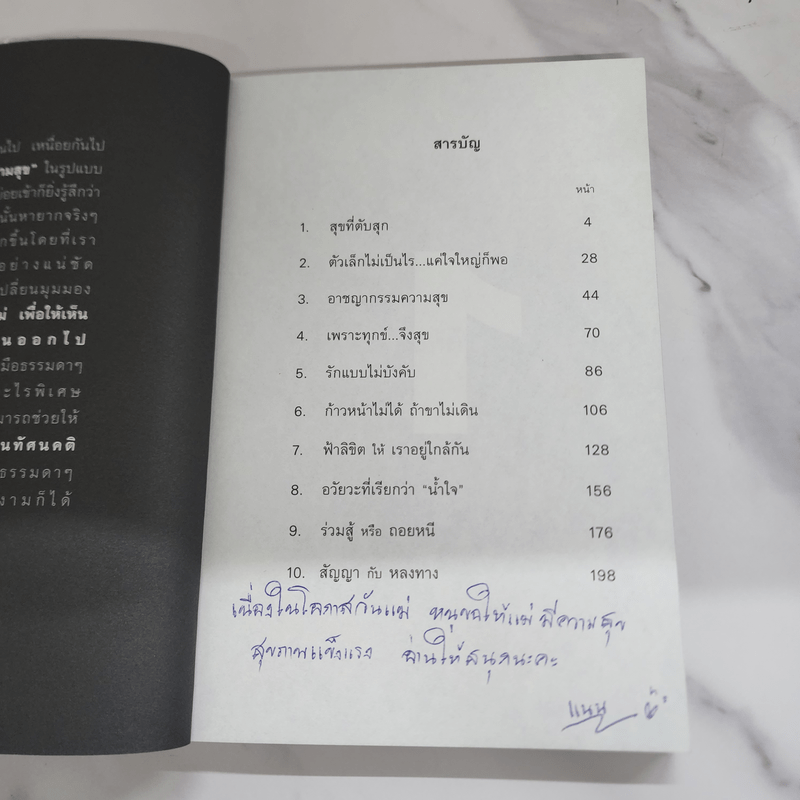 นไป เหนื่อยกันไป
ามสุข" ในรูปแบบ
่อยเข้าก็ยิ่งรู้สึกว่า
นั้นหายากจริงๆ
กขึ้นโดยที่เรา
อย่างแน่ชัด
ปลี่ยนมุมมอง
ม่ เพื่อให้เห็น
นออกไป
มือธรรมดาๆ
ะไรพิเศษ
มารถช่วยให้
นทัศนคติ
ธรรมดาๆ
งามก็ได้
สารบัญ
หน้า
1. สุขที่ตับสุก 4
2. ตัวเล็กไม่เป็นไร...แค่ใจใหญ่ก็พอ 28
3. อาชญากรรมความสุข 44
4. เพราะทุกข์...จึงสุข 70
5. รักแบบไม่บังคับ 86
6. ก้าวหน้าไม่ได้ ถ้าขาไม่เดิน 106
7. ฟ้าลิขิต ให้ เราอยู่ใกล้กัน 128
8. อวัยวะที่เรียกว่า "น้ำใจ" 156
9. ร่วมสู้ หรือ ถอยหนี 176
10. สัญญา กับ หลงทาง 198
เนื่องในโอกาสวันแม่ หนูขอให้แม่มีความสุข
สุขภาพแข็งแรง อ่านให้สนุกนะคะ
แนน